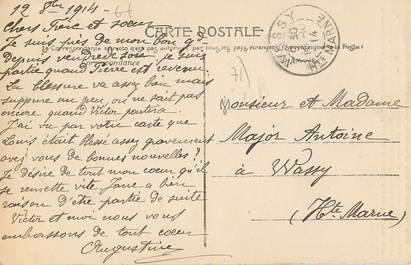 12 8bre 1914 -
CARTE POSTALE
Chers Frère et soeur
Je suis près de mon bon
Correspondance
Depuis vendredi soir je suis
partie quand Pierre est revenu
La blessure va assez bien mais
suppure un peu, on ne sait pas
encore quand Victor partira
J'ai vu par votre carte que
Louis était blessé assez gravement
avez vous de bonnes nouvelles?
Je Désire de tout mon cœur qu'il
se remette vite Jane a bien
raison d'être partie de suite
Victor et moi nous vous
embrassons de tout coeur
Augustine
WASSY
14
Hte MARNE
71
Monsieur et Madame
Major Antoine
à Wassy
(Hte Marne)